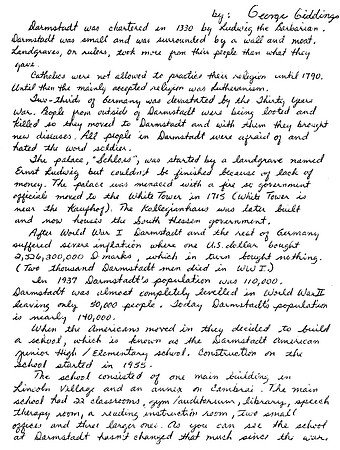 by: George Giddings
Darmstadt was chartered in 1330 by Ludwig the Barbarian.
Darmstadt was small and was surrounded by a wall and moat.
Landgraves, or rulers, took more from their people than what they
gave.
Catholics were not allowed to practice their religion until 1790.
Until then the mainly accepted religion was Lutheranism.
Two-thirds of Germany was devastated by the Thirty Years
War. People from outside of Darmstadt were being looted and
killed so they moved to Darmstadt and with them they brought
new diseases. All people in Darmstadt were afraid of and
hated the word soldier.
The palace, "Schloss", was started by a landgrave named
Ernst Ludwig but couldn't be finished because of lack of
money. The palace was menaced with a fire so government
officials moved to the White Tower in 1715 (White Tower is
near the Kaufhof). The Kollegienhaus was later built
and now houses the South Hessen government.
After World War I Darmstadt and the rest of Germany
suffered severe inflation where one U.S. dollar bought
2,526,300,000 D marks, which in turn bought nothing.
(Two thousand Darmstadt men died in WWI.)
In 1937 Darmstadt's population was 110,000.
Darmstadt was almost completely levelled in World War II
leaving only 50,000 people. Today Darmstadt's population
is nearly 140,000.
When the Americans moved in they decided to build
a school, which is known as the Darmstadt American
Junior High / Elementary school. Construction on the
school started in 1955.
The school consisted of one main building in
Lincoln Village and an annex on Cambrai. The main
school had 22 classrooms, gym/auditorium, library, speech
therapy room, a reading instruction room, two small
offices and three larger ones. As you can see the school
at Darmstadt hasn't changed that much since the war.